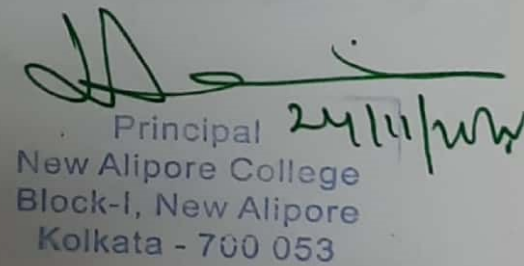 Principal 24/11/
New Alipore College
Block-I, New Alipore
Kolkata - 700 053